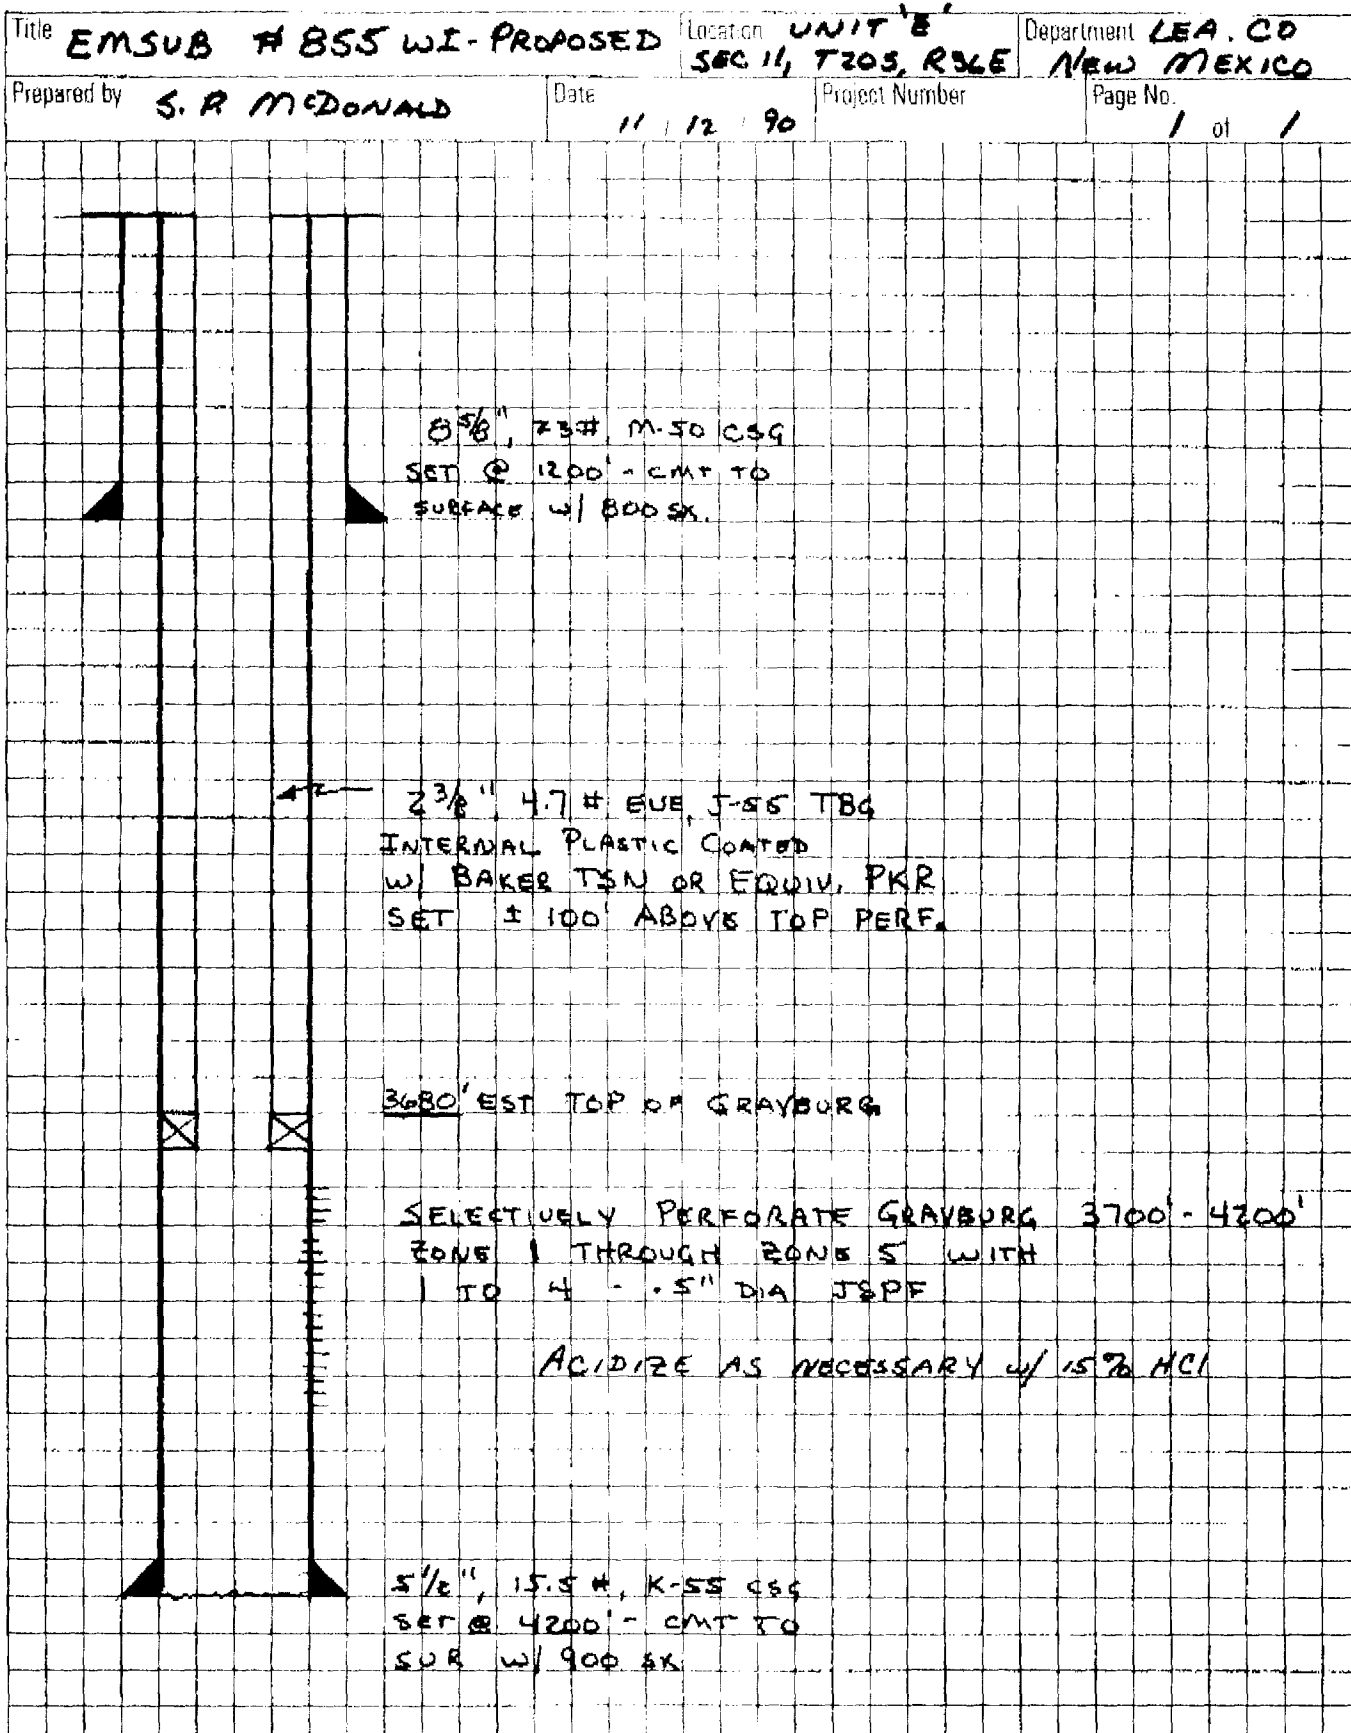 Title EMSUB # 855 WI-PROPOSED
Location UNIT 'E'
SEC 11, T20S, R36E
Department LEA. CO
NEW MEXICO
Prepared by S. R McDONALD
Date 11 / 12 / 90
Project Number
Page No. 1 of 1
8 5/8", 23#, M-50 CSG
SET @ 1200' - CMT TO
SURFACE w/ 800 SX.
2 3/8", 4.7 # EUE, J-55 TBG
INTERNAL PLASTIC COATED
w/ BAKER TSN OR EQUIV. PKR
SET ± 100' ABOVE TOP PERF.
3680' EST TOP OF GRAYBURG
SELECTIVELY PERFORATE GRAYBURG 3700' - 4200'
ZONE 1 THROUGH ZONE 5 WITH
1 TO 4 - .5" DIA JSPF
ACIDIZE AS NECESSARY w/ 15% HCl
5 1/2", 15.5 #, K-55 CSG
SET @ 4200' - CMT TO
SUR w/ 900 SX